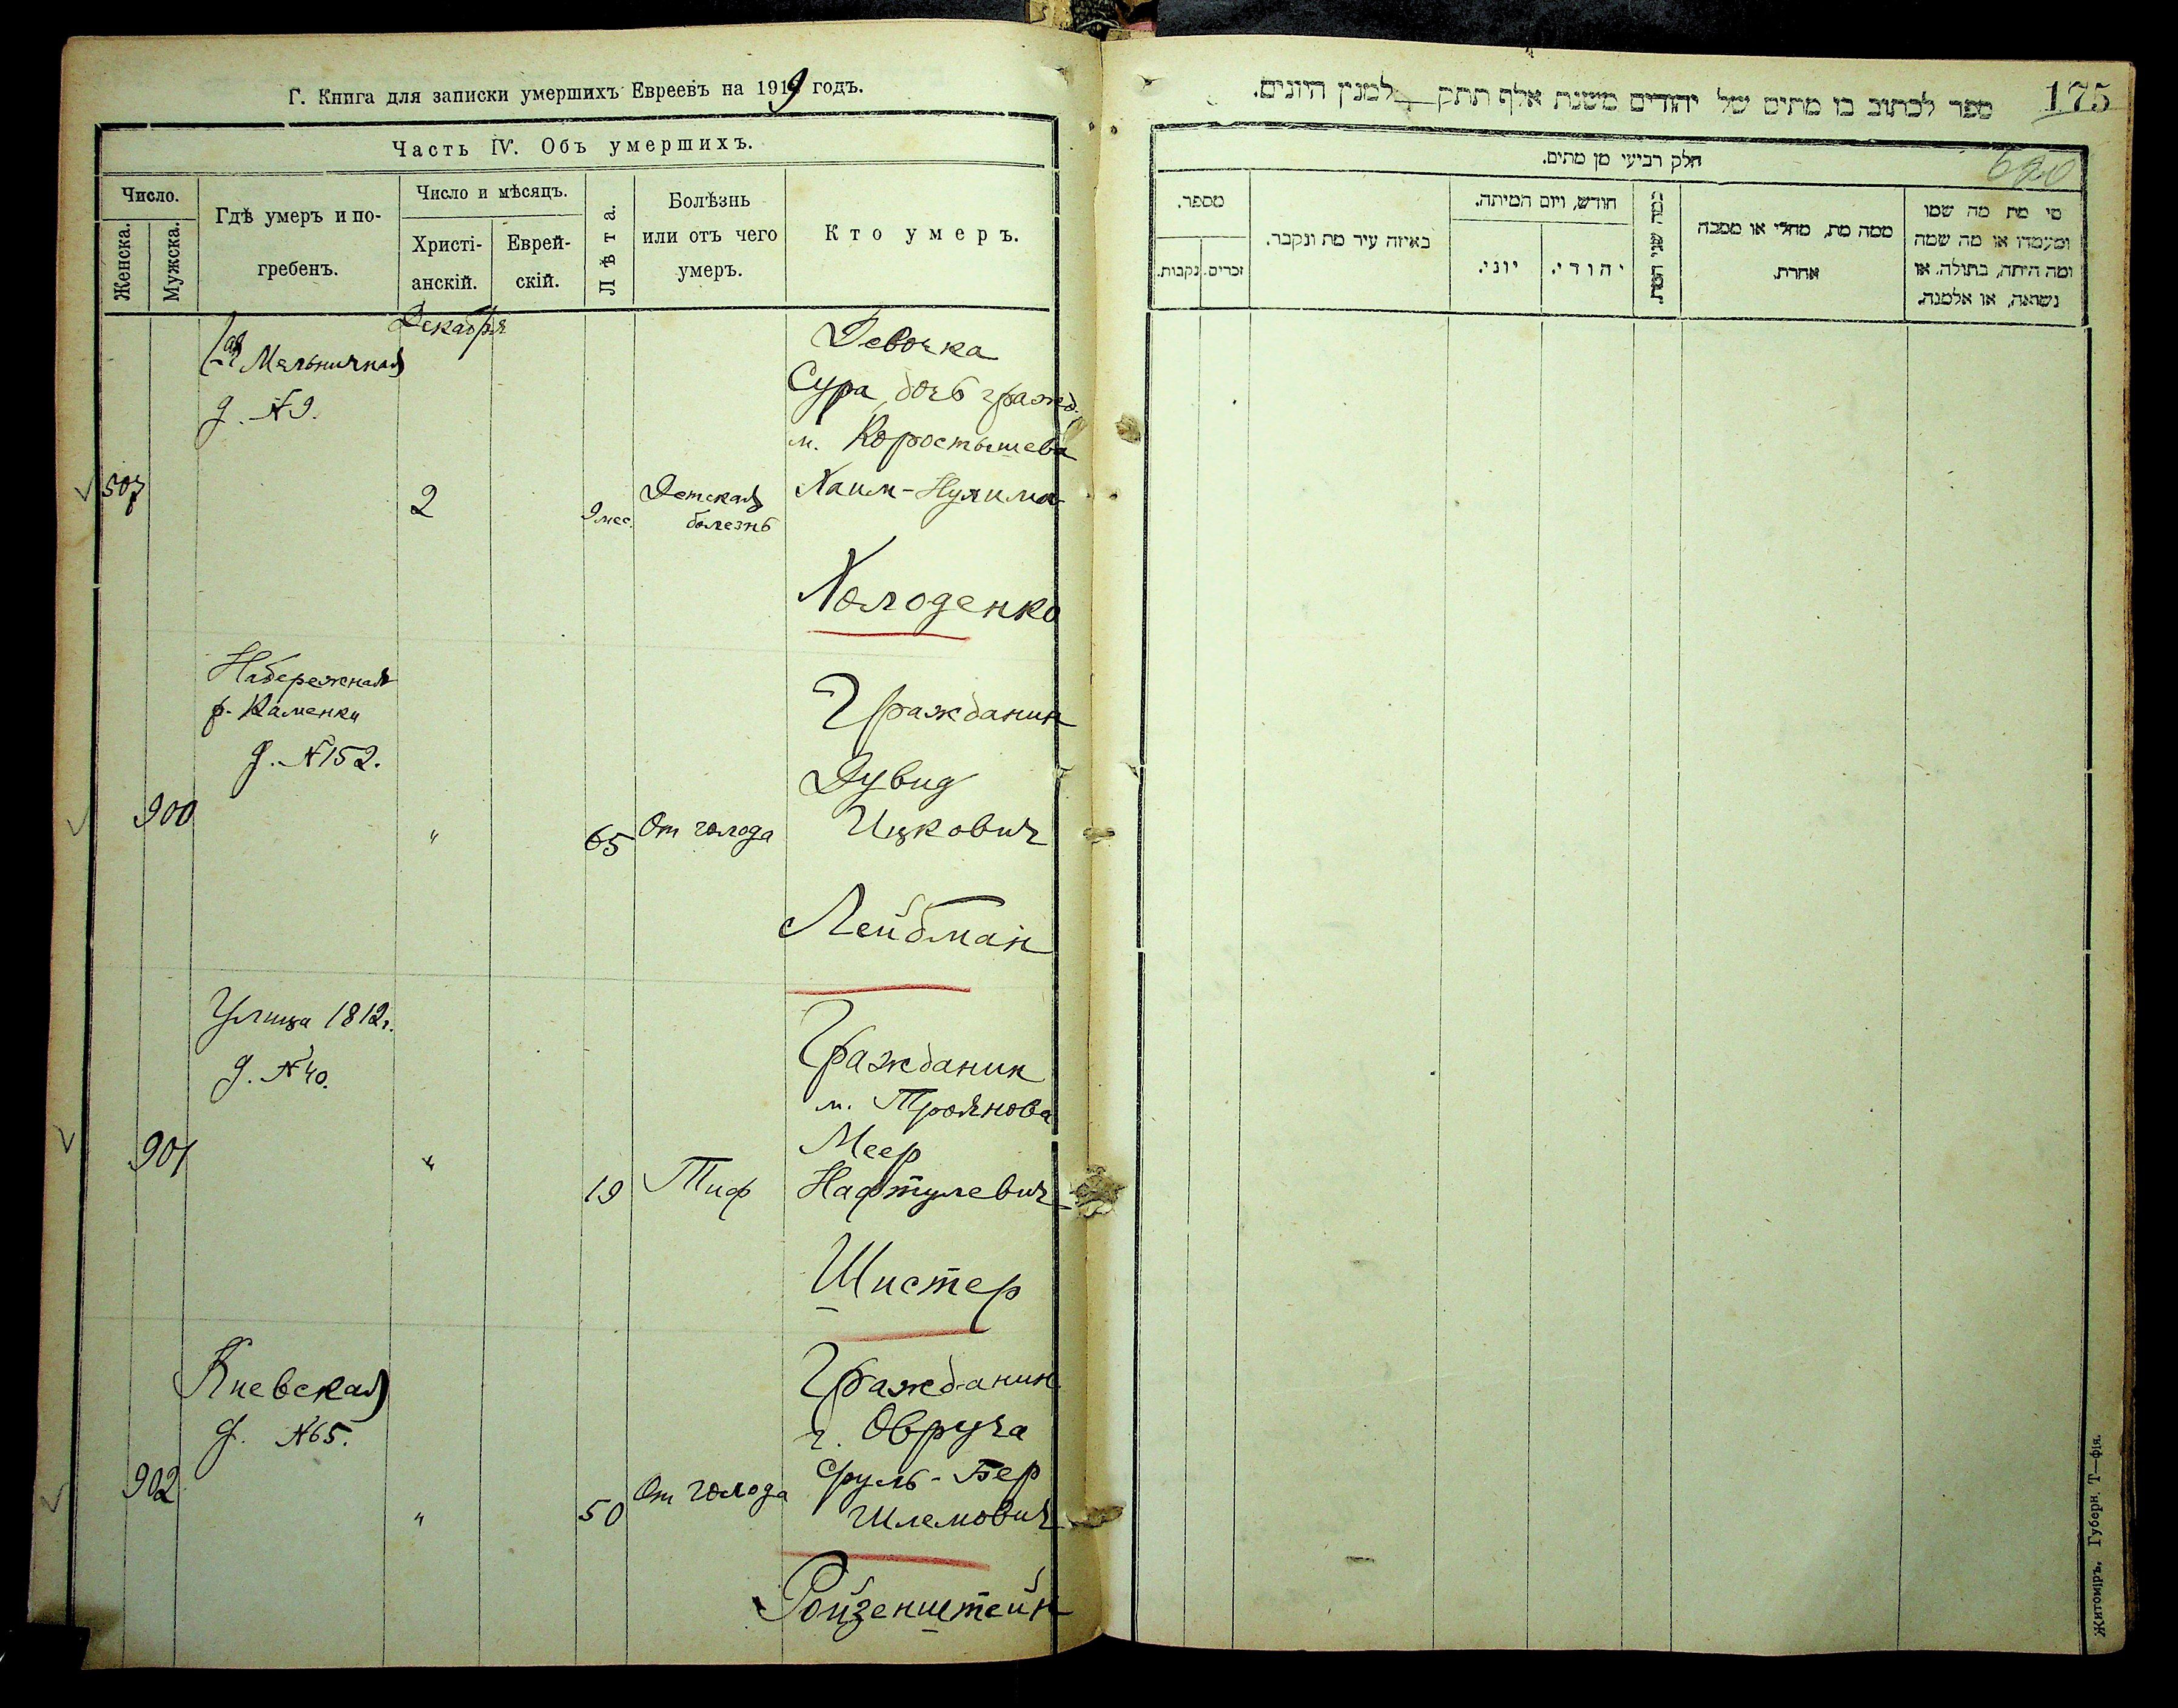 Г. Книга для записки умершихъ Евреевъ на 1919 годъ.
Часть IV. Объ умершихъ.
Число.
Женска.
Мужска.
Гдѣ умеръ и по-
гребенъ.
Число и мѣсяцъ.
Христі-
анскій.
Еврей-
скій.
Лѣта.
Болѣзнь
или отъ чего
умеръ.
Кто умеръ.
Декабря
1ая Мельничная
д. №9.
507
2
9 мес.
Детская
болезнь
Девочка
Сура, дочь гражд.
м. Коростышева
Хаим-Нухима
Холоденко
Набережная
р. Каменки
д. №152.
900
"
65
От голода
Гражданин
Дувид
Ицкович
Лейбман
Улица 1812г.
д. №40.
901
"
19
Тиф
Гражданин
м. Троянова
Меер
Нафтулевич
Шистер
Киевская
д. №65.
902
"
50
От голода
Гражданин
г. Овруча
Сруль-Бер
Шлемович
Ройзенштейн
175
ספר לכתוב בו מתים של יהודים משנת אלף תתק למנין היונים.
חלק רביעי מן מתים.
מספר.
זכרים.
נקבות.
באיזה עיר מת ונקבר.
חודש, ויום המיתה.
יוני.
יהודי.
כמה שני המת.
ממה מת, מחלי או מסבה
אחרת.
מי מת מה שמו
ומעמדו או מה שמה
ומה היתה, בתולה, או
נשואה, או אלמנה.
Житоміръ, Губерн. Т—фія.